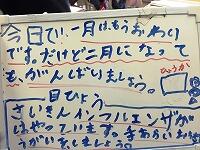 今日で、一月はもうおわり
です。だけど二月になって
も、がんばりましょう。
ひょうか
一目ひょう
さいきんインフルエンザが
はやっています。手あらいおよび
うがいをしましょう。